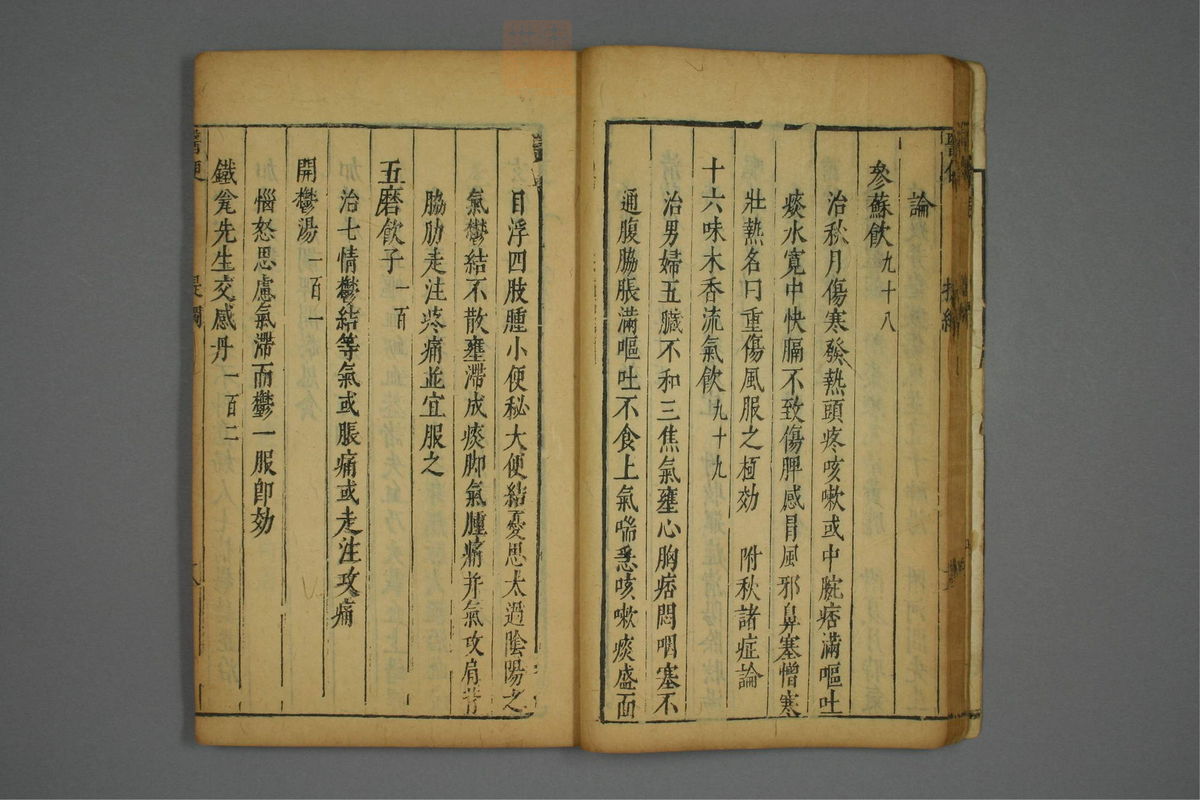 論
參蘇飲九十八
治秋月傷寒發熱頭疼咳嗽或中脘痞滿嘔吐
痰水寬中快膈不致傷脾感冒風邪鼻塞憎寒
壯熱名曰重傷風服之極効　附秋諸症論
十六味木香流氣飲九十九
治男婦五臟不和三焦氣壅心胸痞悶咽塞不
通腹脇脹滿嘔吐不食上氣喘急咳嗽痰盛面
目浮四肢腫小便秘大便結憂思太過陰陽之
氣鬱結不散壅滯成痰脚氣腫痛并氣攻肩背
脇肋走注疼痛並宜服之
五磨飲子一百
治七情鬱結等氣或脹痛或走注攻痛
開鬱湯一百一
惱怒思慮氣滯而鬱一服卽効
鐵瓮先生交感丹一百二
醫便
提綱